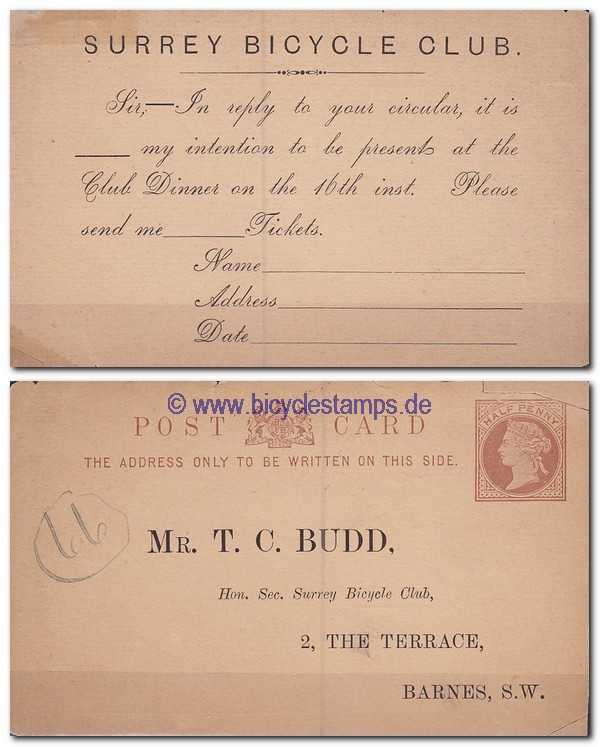 SURREY BICYCLE CLUB.
Sir,—In reply to your circular, it is
____ my intention to be present at the
Club Dinner on the 16th inst. Please
send me______Tickets.
Name____________________
Address__________________
Date____________________
© www.bicyclestamps.de
POST CARD
HALF PENNY
THE ADDRESS ONLY TO BE WRITTEN ON THIS SIDE.
MR. T. C. BUDD,
Hon. Sec. Surrey Bicycle Club,
2, THE TERRACE,
BARNES, S.W.